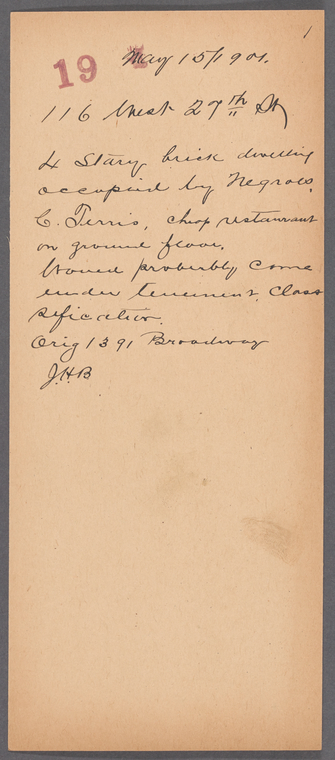 1
19
May 15/1901.
116 West 27th St
4 Story brick dwelling
occupied by Negroes.
C. Ferris, chop restaurant
on ground floor.
Would proberbly come
under tenement. Class
sification.
Orig 1391 Broadway
J.H.B